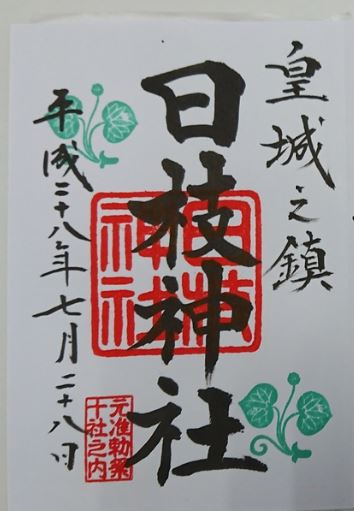 皇城之鎮
日枝神社
日枝神社
平成二十八年七月二十八日
元准勅祭
十社之内